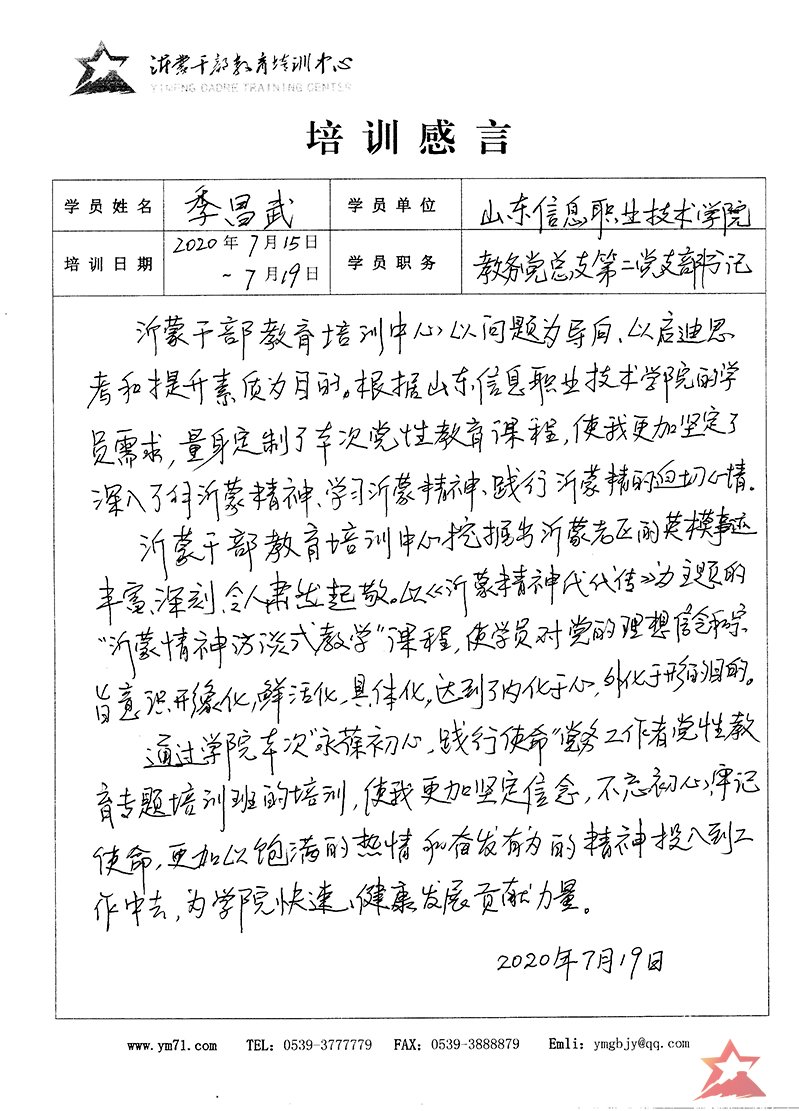 沂蒙干部教育培训中心
YIMENG CADRE TRAINING CENTER
培训感言
学员姓名 季昌武 学员单位 山东信息职业技术学院
培训日期 2020年7月15日
~7月19日 学员职务 教务党总支第二党支部书记
沂蒙干部教育培训中心以问题为导向、以启迪思
考和提升素质为目的。根据山东信息职业技术学院的学
员需求，量身定制了本次党性教育课程，使我更加坚定了
深入了解沂蒙精神、学习沂蒙精神、践行沂蒙精的迫切心情。
沂蒙干部教育培训中心挖掘出沂蒙老区的英模事迹
丰富、深刻，令人肃然起敬。以《沂蒙精神代代传》为主题的
“沂蒙情神访谈式教学”课程，使学员对党的理想信念和宗
旨意识形象化，鲜活化，具体化，达到了内化于心，外化于形的目的。
通过学院本次“永葆初心，践行使命”党务工作者党性教
育专题培训班的培训，使我更加坚定信念，不忘初心，牢记
使命，更加以饱满的热情和奋发有为的精神投入到工
作中去，为学院快速、健康发展贡献力量。
2020年7月19日
www.ym71.com TEL：0539-3777779 FAX：0539-3888879 Emli：ymgbjy@qq.com